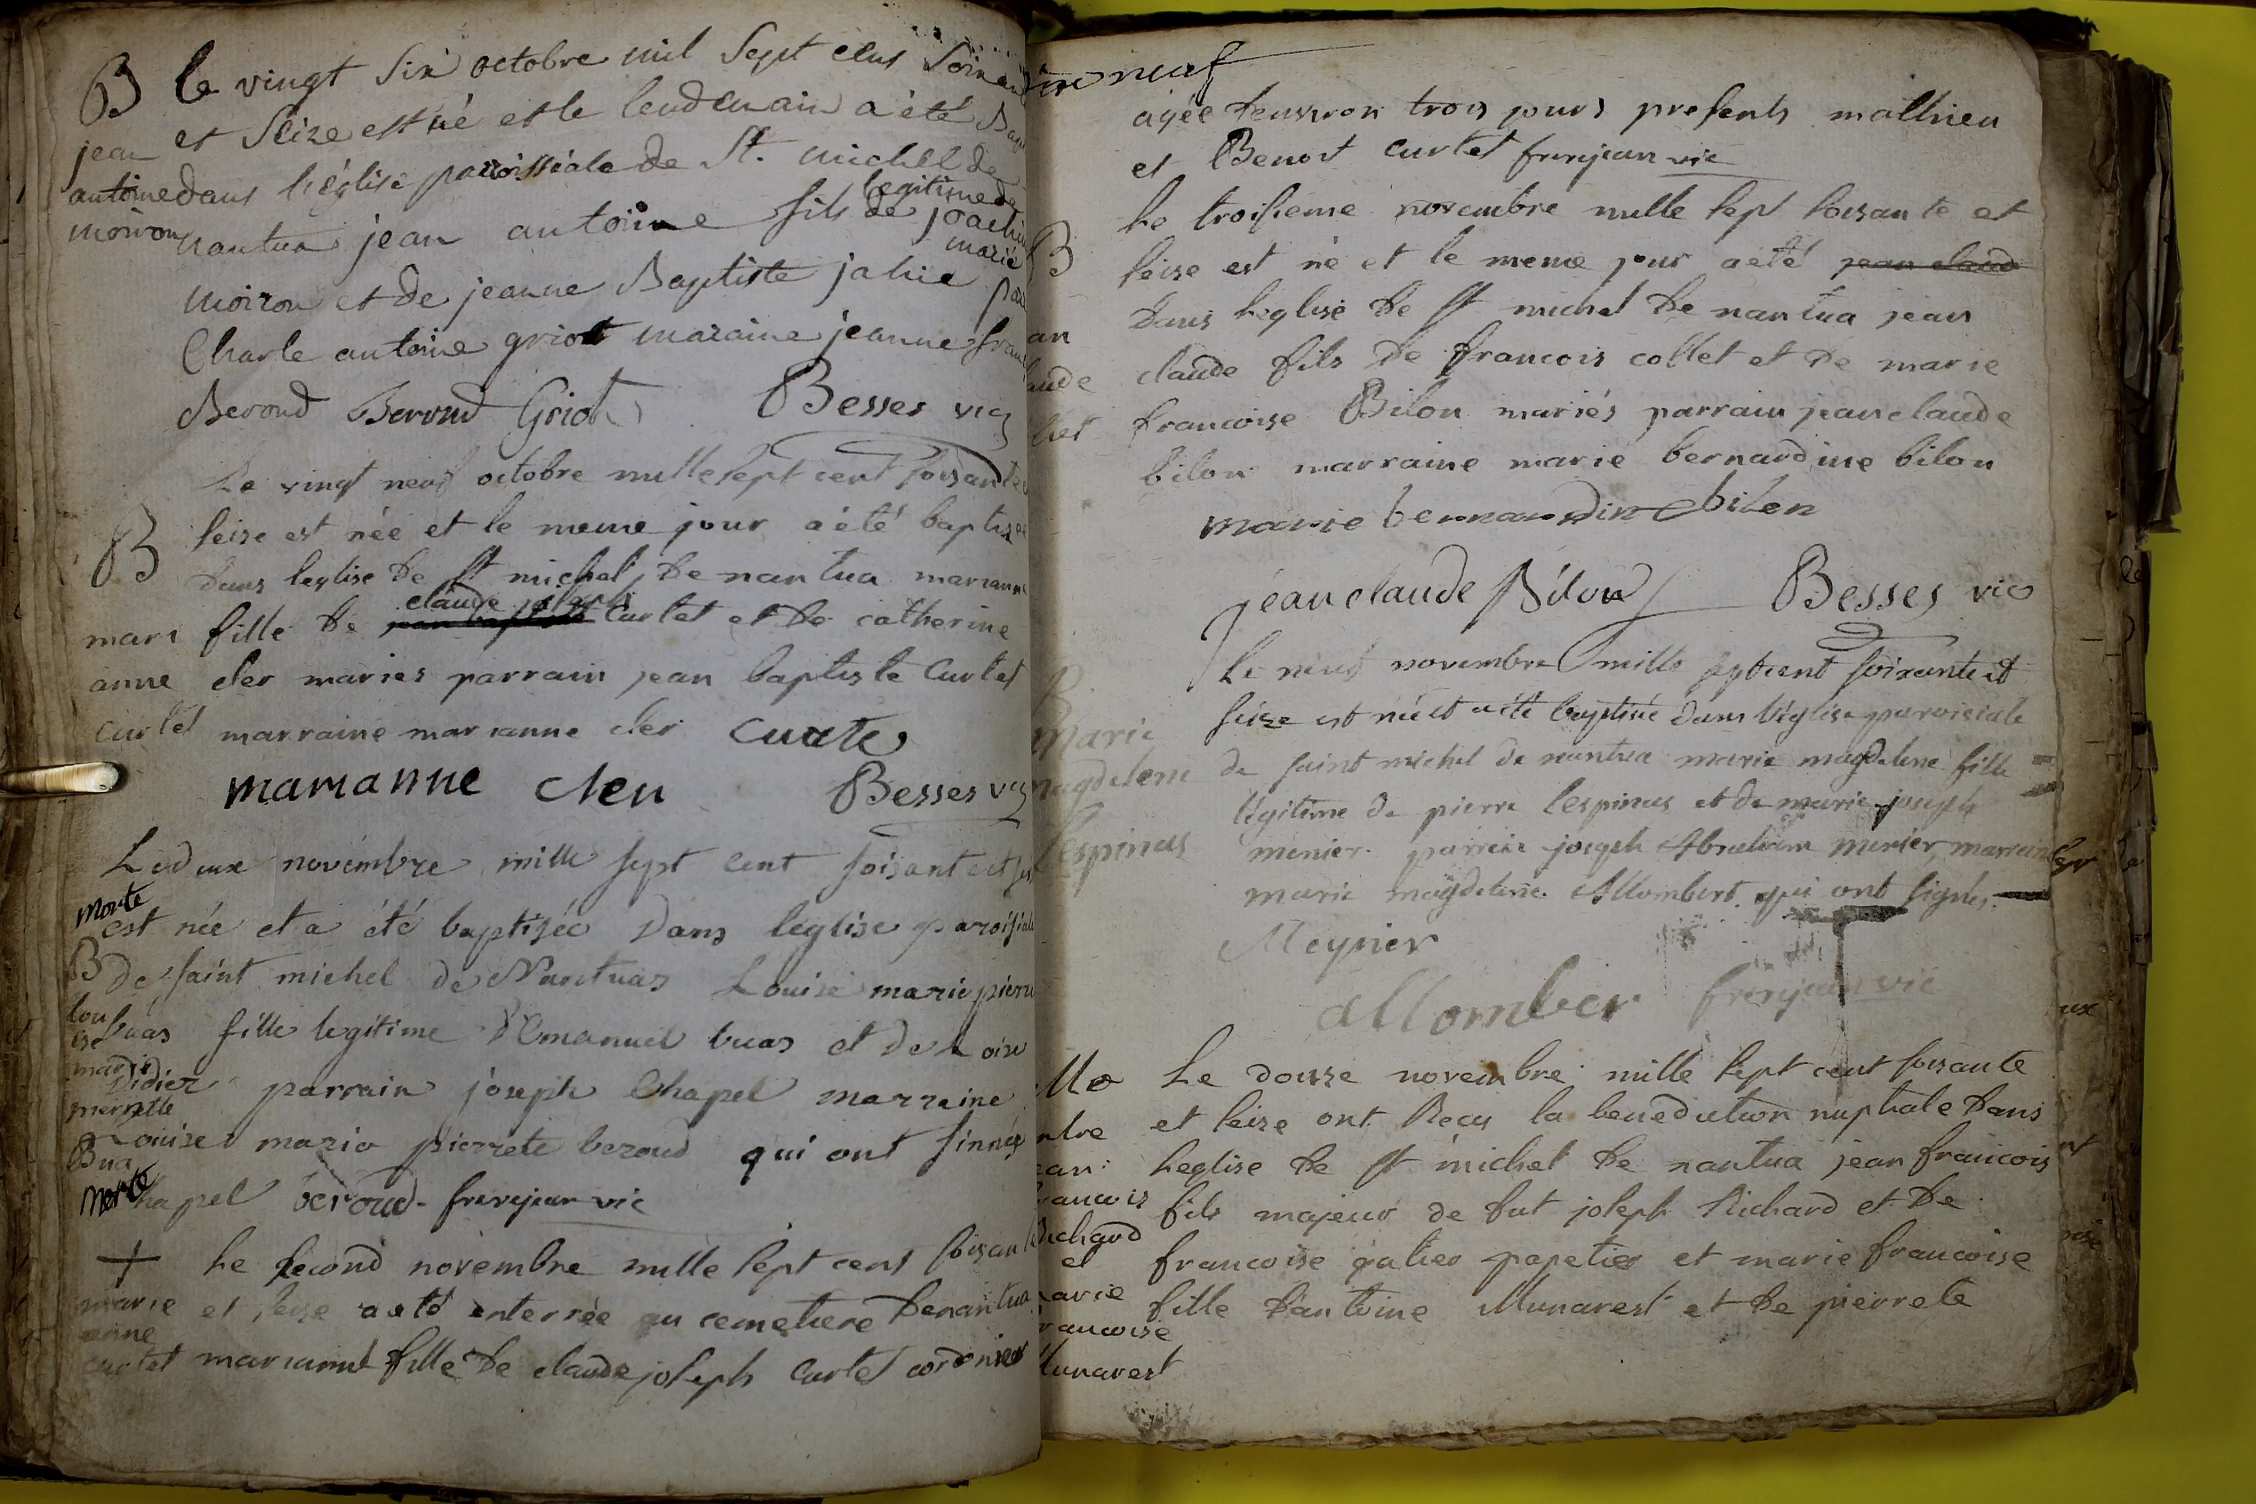 B le vingt Six octobre mil Sept cens Soixan
et Seize est né et le lendemain a été Bap
jean
antoine
moiron
dans l'église paroissiale de St. michel de
nantua jean antoine fils legitime de joachim
moiron et de jeanne Baptiste jalie marié par
Charle antoine griot maraine jeanne fran
Beroud Beroud Griot Besses vic
Le vingt neuf octobre mille sept cent soisante
B
seise est née et le meme jour a été baptisée
dans leglise de st michel de nantua marianne
mari
anne
curtet
fille de jean baptiste claude joseph Curtet et de catherine
cler maries parrain jean baptiste Curtet
marraine marianne cler Curte
marianne cleu Besses vic
Le deux novembre mille sept cent soisant et sei
morte
est née et a été baptisée Dans leglise paroisiale
B
de saint michel de Nantuas Louise marie pierre
lou
ise
marie
pierrette
Bua
morte
buas fille legitime d'Emanuel buas et de Loise
Didier parrain joseph Chapel marraine
Louise marie pierrete beroud qui ont sinnés
Chapel beroud frerejean vic
+ Le second novembre mille sept cent soisante
marie
anne
curtet
et seise a eté enterrée au cemetiere de nantua
marianne fille de claude joseph Curtet cordonier
neuf
agée denviron trois jours presents mathieu
et Benoit Curtet frerejean vic
B
an
aude
llet
Le troisieme novembre mille sept soisante et
seise est né et le meme jour a eté jean claud
Dans leglise de st michel de nantua jean
claude fils de francois collet et de marie
francoise Bilon mariés parrain jean claude
bilon marraine marie bernardine bilon
marie bernardine bilon
jean claude Bilon Besses vic
B
Marie
magdelene
Lespinas
Le neuf novembre mille septcent soixante et
seize est née et a été baptisée dans l'église paroisiale
de saint michel de nantua marie magdelene fille
légitime de pierre lespinas et de marie joseph
menier parrein joseph Abraham menier, marrein
marie magdelene Allombert qui ont signés.
Meynier
allomber frerejean vic
ean
rancois
Richard
et
marie
francoise
Munarest
Le douse novembre mille sept cent soisante
et seise ont Recu la benediction nuptiale Dans
leglise de st michel de nantua jean francois
fils majeur de fut joseph Richard et de
francoise galies papetier et marie francoise
fille d'antoine Munarest et de pierrete